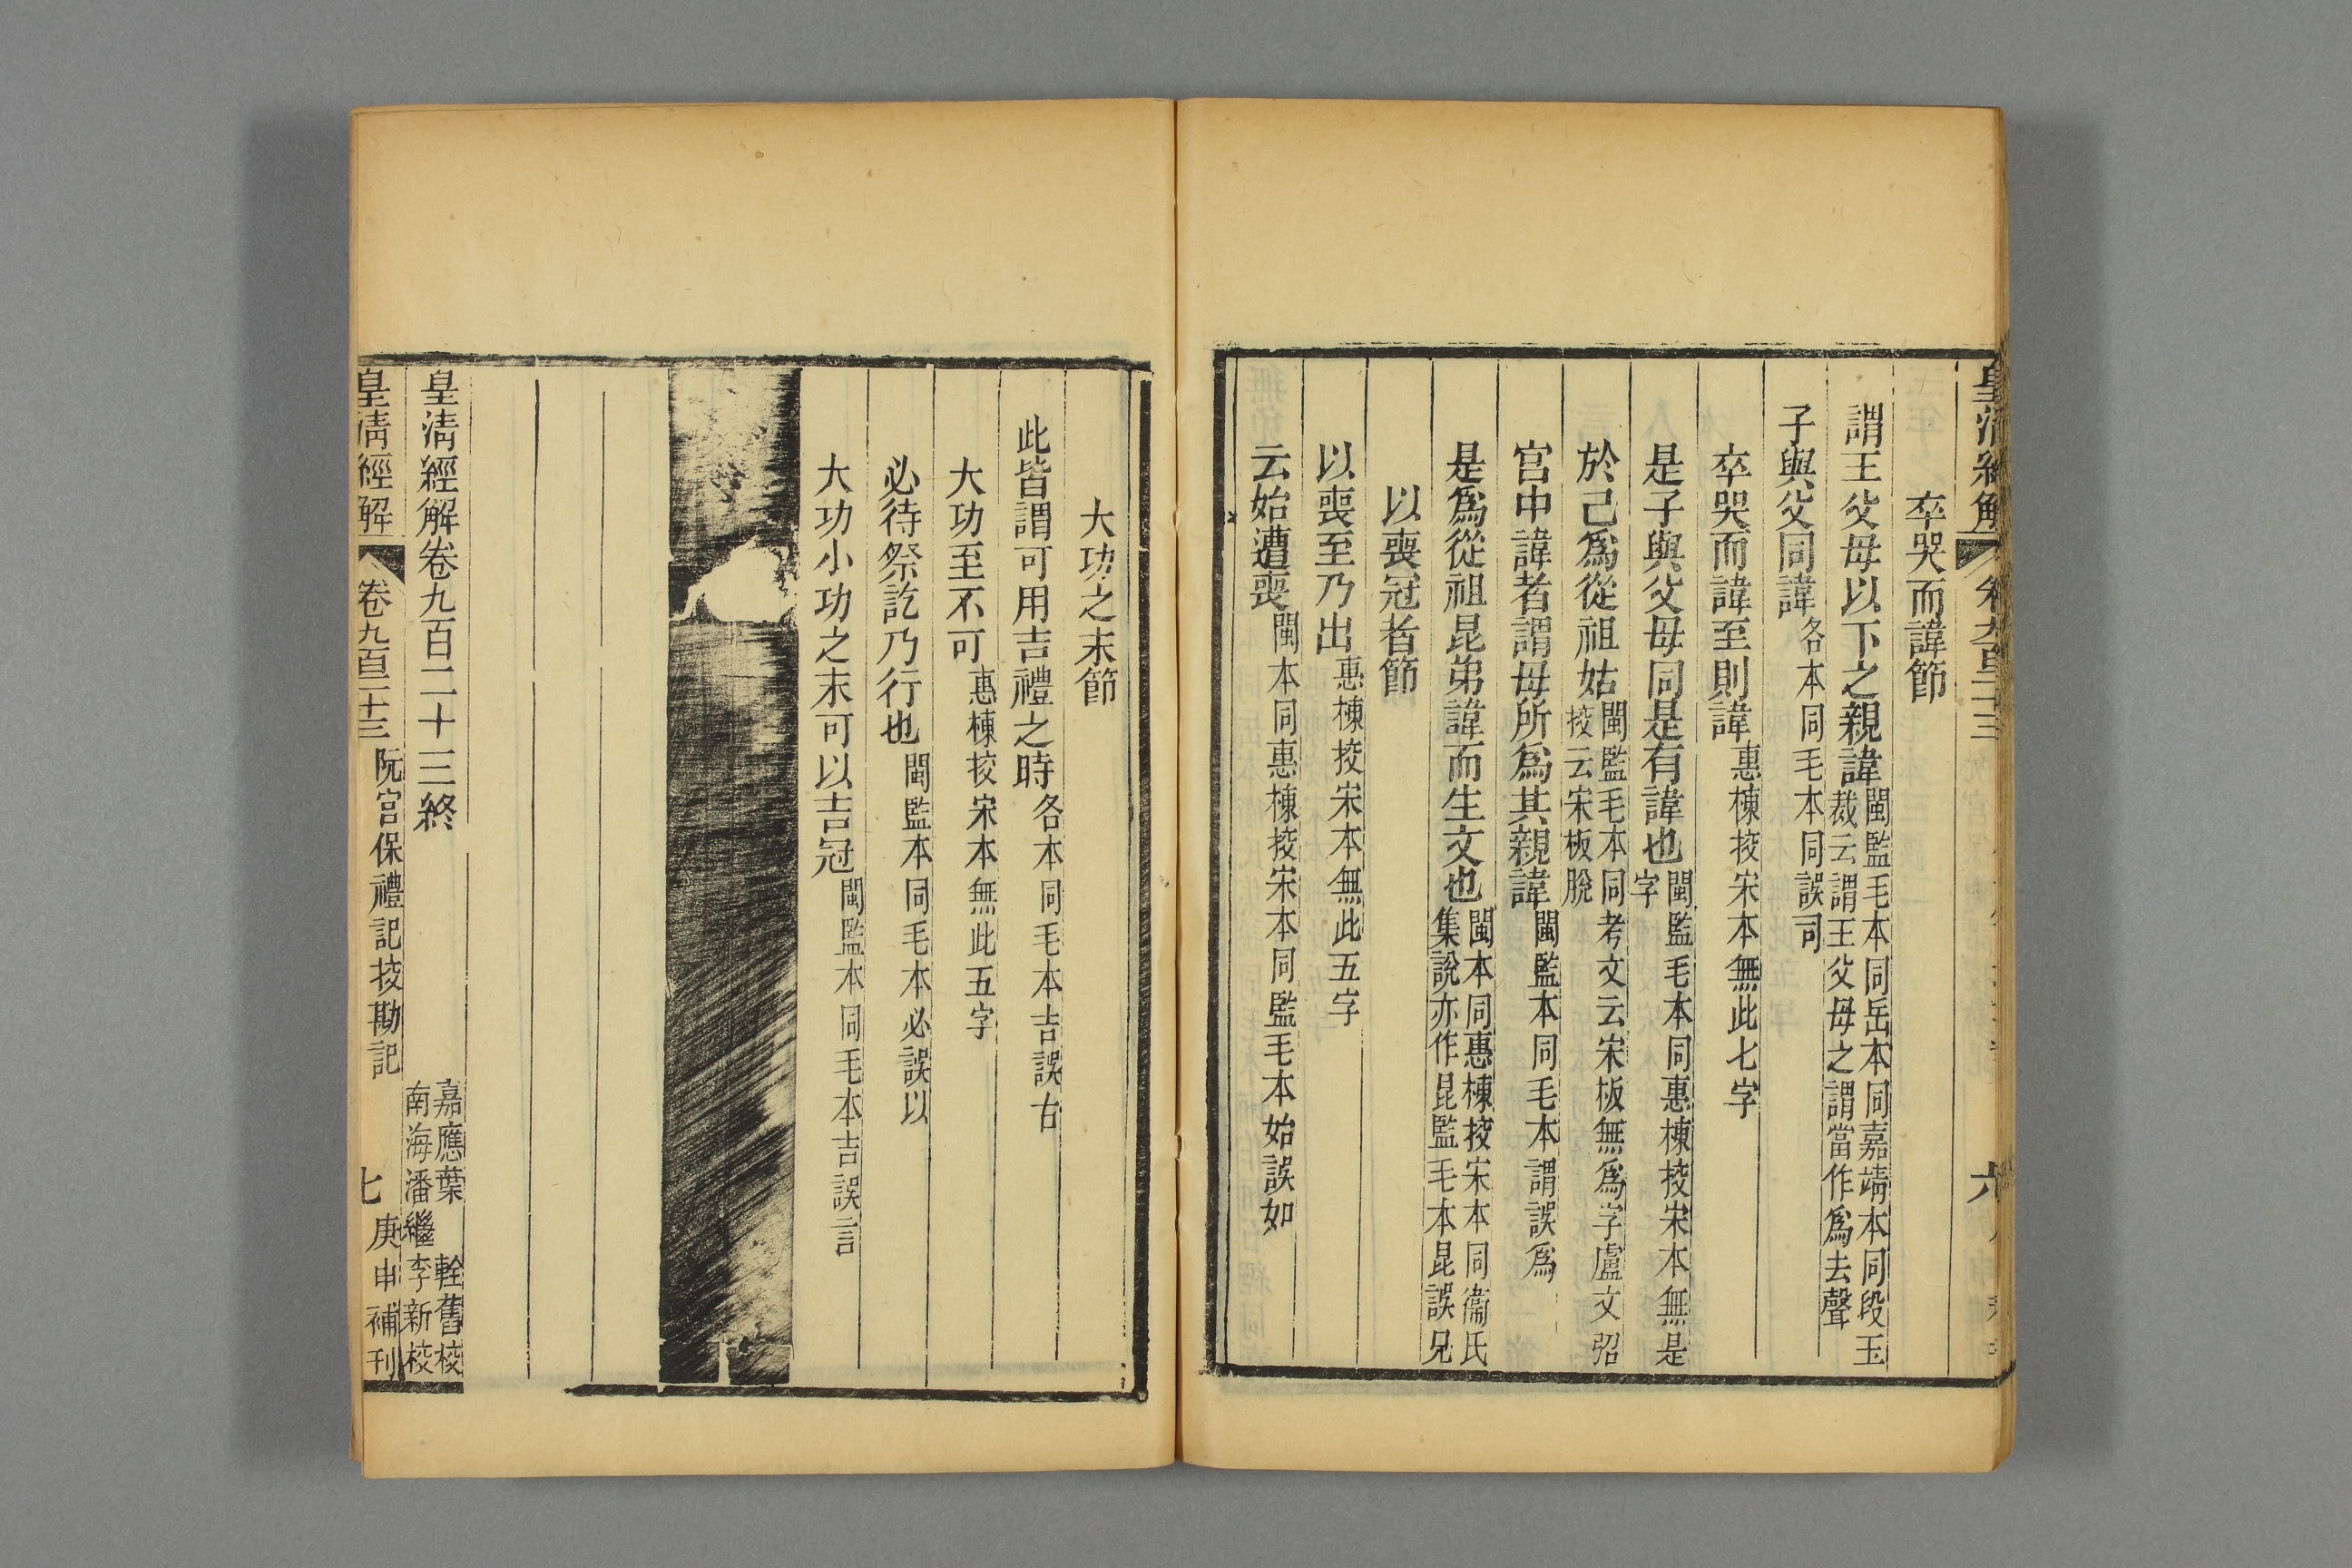 皇清經解 卷九百二十三 六
卒哭而諱節
謂王父母以下之親諱閩監毛本同岳本同嘉靖本同段玉
裁云謂王父母之謂當作爲去聲
子與父同諱各本同毛本同誤司
卒哭而諱至則諱惠棟挍宋本無此七字
是子與父母同是有諱也閩監毛本同惠棟挍宋本無是
字
於己爲從祖姑閩監毛本同考文云宋板無爲字盧文弨
挍云宋板脫
宮中諱者謂母所爲其親諱閩監本同毛本謂誤爲
是爲從祖昆弟諱而生文也閩本同惠棟挍宋本同衞氏
集說亦作昆監毛本昆誤兄
以喪冠者節
以喪至乃出惠棟挍宋本無此五字
云始遭喪閩本同惠棟挍宋本同監毛本始誤如
大功之末節
此皆謂可用吉禮之時各本同毛本吉誤古
大功至不可惠棟挍宋本無此五字
必待祭訖乃行也閩監本同毛本必誤以
大功小功之末可以吉冠閩監本同毛本吉誤言
皇清經解卷九百二十三終
嘉應葉 輇舊校
南海潘繼李新校
皇清經解 卷九百二十三 阮宮保禮記挍勘記 七 庚申補刊